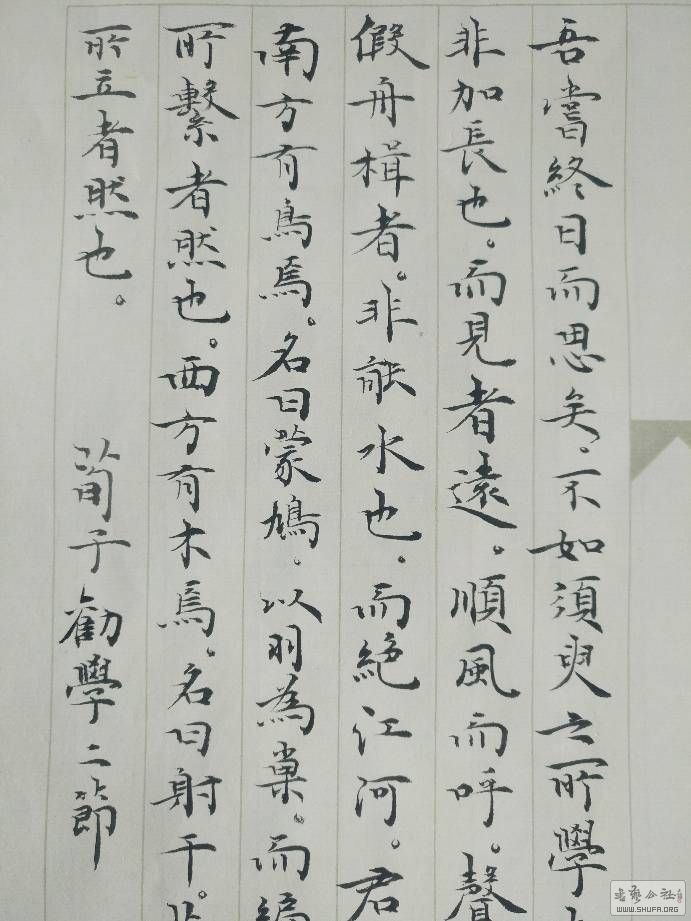 吾嘗終日而思矣。不如須臾之所學
非加長也。而見者遠。順風而呼。聲
假舟楫者。非能水也。而絕江河。君
南方有鳥焉。名曰蒙鳩。以羽為巢。而編
所繫者然也。西方有木焉。名曰射干。
所立者然也。
荀子勸學二節
書藝公社
WWW.SHUFA.ORG